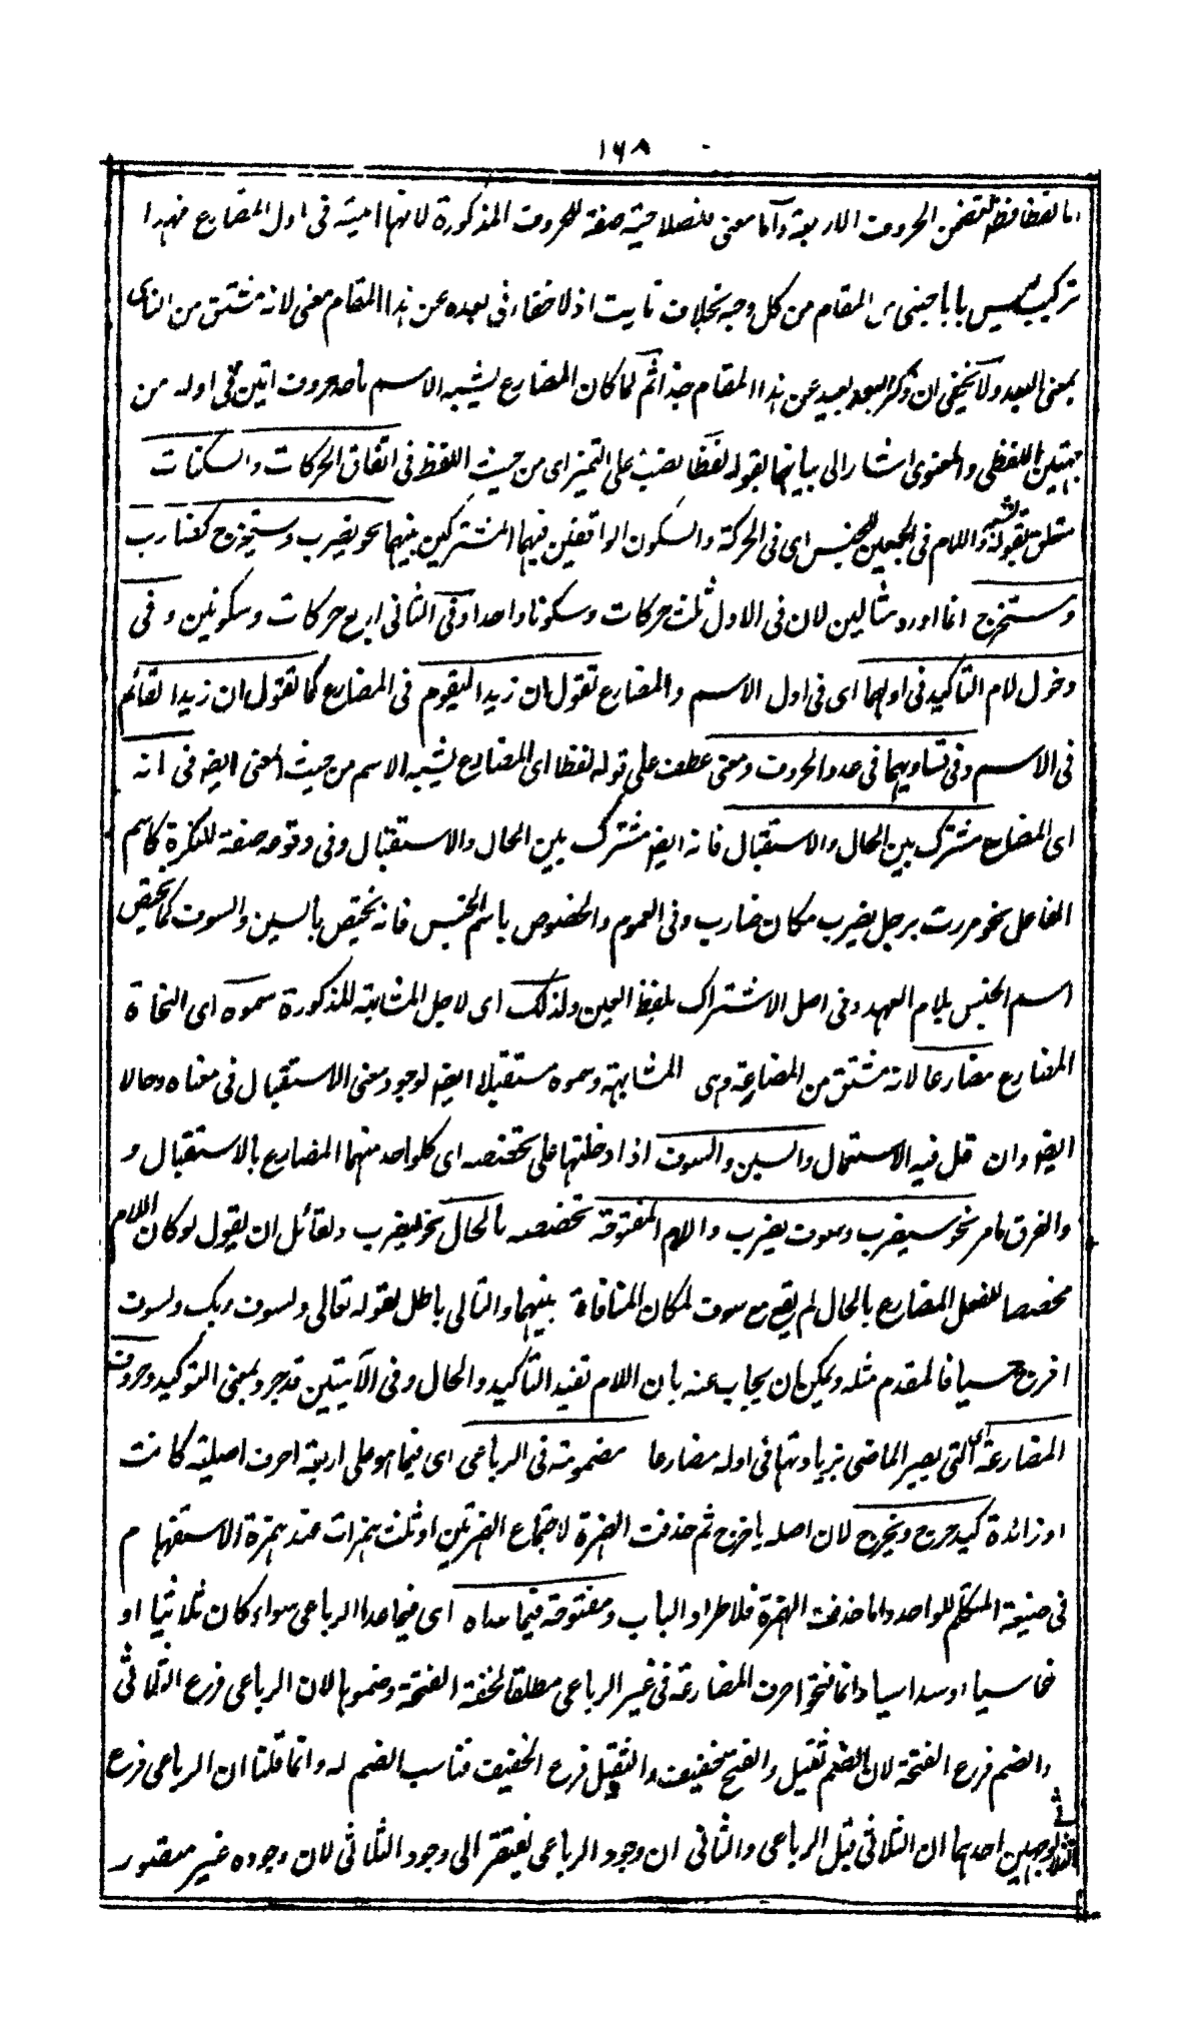 ١٦٨
اما لفظا فظ لتضمن الحروف الاربعة واما معنى فلصلاحية صفة للحروف المذكورة لانها آتية فى اول المضارع فهذا
تركيب ليس باجنبى من المقام من كل وجه بخلاف نايت اذ لا خفاء فى بعده عن هذا المقام معنى لانه مشتق من الناى
بمعنى البعد ولا يخفى ان ذكر البعد بعيد عن هذا المقام جدا ثم لما كان المضارع يشبه الاسم باحد حروف اتين فى اوله من
جهتين اللفظى والمعنوى اشار الى بيانهما بقوله لفظا نصب على التميز اى من حيث اللفظ فى اتفاق الحركات والسكنات
متعلق بقوله يشبه واللام فى الجمعين للجنس اى فى الحركة والسكون الواقعين فيهما المشتركين بينهما نحو يضرب ويستخرج كضارب
ومستخرج انما اورد مثالين لان فى الاول ثلث حركات وسكونا واحدا وفى الثانى اربع حركات وسكونين وفى
دخول لام التاكيد فى اولهما اى فى اول الاسم والمضارع تقول ان زيدا ليقوم فى المضارع كما تقول ان زيدا لقائم
فى الاسم وفى تساويهما فى عدد الحروف ومعنى عطف على قوله لفظا اى المضارع يشبه الاسم من حيث المعنى ايضا فى انه
اى المضارع مشترك بين الحال والاستقبال فانه ايضا مشترك بين الحال والاستقبال وفى وقوعه صفة للنكرة كاسم
الفاعل نحو مررت برجل يضرب مكان ضارب وفى العموم والخصوص باسم الجنس فانه يختص بالسين والسوف كما يختص
اسم الجنس بلام العهد وفى اصل الاشتراك بلفظ العين ولذلك اى لاجل المشابهة المذكورة سموه اى النحاة
المضارع مضارعا لانه مشتق من المضارعة وهى المشابهة وسموه مستقبلا ايضا لوجود معنى الاستقبال فى معناه وحالا
ايضا وان قل فيه الاستعمال والسين والسوف اذا دخلتها على تختصه اى كلواحد منهما المضارع بالاستقبال و
والفرق مامر نحو سيضرب وسوف يضرب واللام المفتوحة تخصصه بالحال نحو ليضرب ولقائل ان يقول لو كان اللام
مخصصا للفعل المضارع بالحال لم يقع مع سوف لمكان المنافاة بينهما والتالى باطل لقوله تعالى ولسوف ربك ولسوف
اخرج حيا فالمقدم مثله ويمكن ان يجاب عنه بان اللام تفيد التاكيد والحال وفى الآيتين قد جرد بمعنى التوكيد وحروف
المضارعة التى يصير الماضى بزيادتها فى اوله مضارعا مضمومة فى الرباعى اى فيما هو على اربعة احرف اصلية كانت
او زائدة كيدحرج ويخرج لان اصله ياخرج ثم حذفت الهمزة لاجتماع الهمزتين او ثلث همزات عند همزة الاستفهام
فى صيغة المتكلم للواحد واما حذفت الهمزة فلاطراد الباب ومفتوحة فيما عداه اى فيما عدا الرباعى سواء كان ثلاثيا او
خماسيا او سداسيا وانما فتحوا حرف المضارعة فى غير الرباعى مطلقا لخفة الفتحة وضموها لان الرباعى فرع الثلاثى
والضم فرع الفتحة لان الضم ثقيل والفتح خفيف والثقيل فرع الخفيف فناسب الضم له وانما قلنا ان الرباعى فرع
الثلاثى لوجهين احدهما ان الثلاثى قبل الرباعى والثانى ان وجود الرباعى يفتقر الى وجود الثلاثى لان وجوده غير متصور